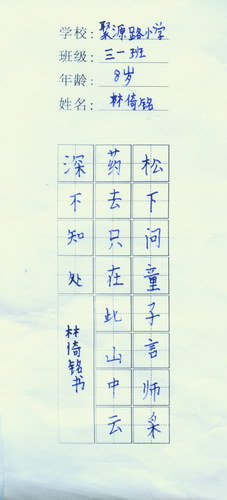 学校：聚源路小学
班级：三一班
年龄：8岁
姓名：林倚铭
松下问童子言师采
药去只在此山中云
深不知处
林倚铭书